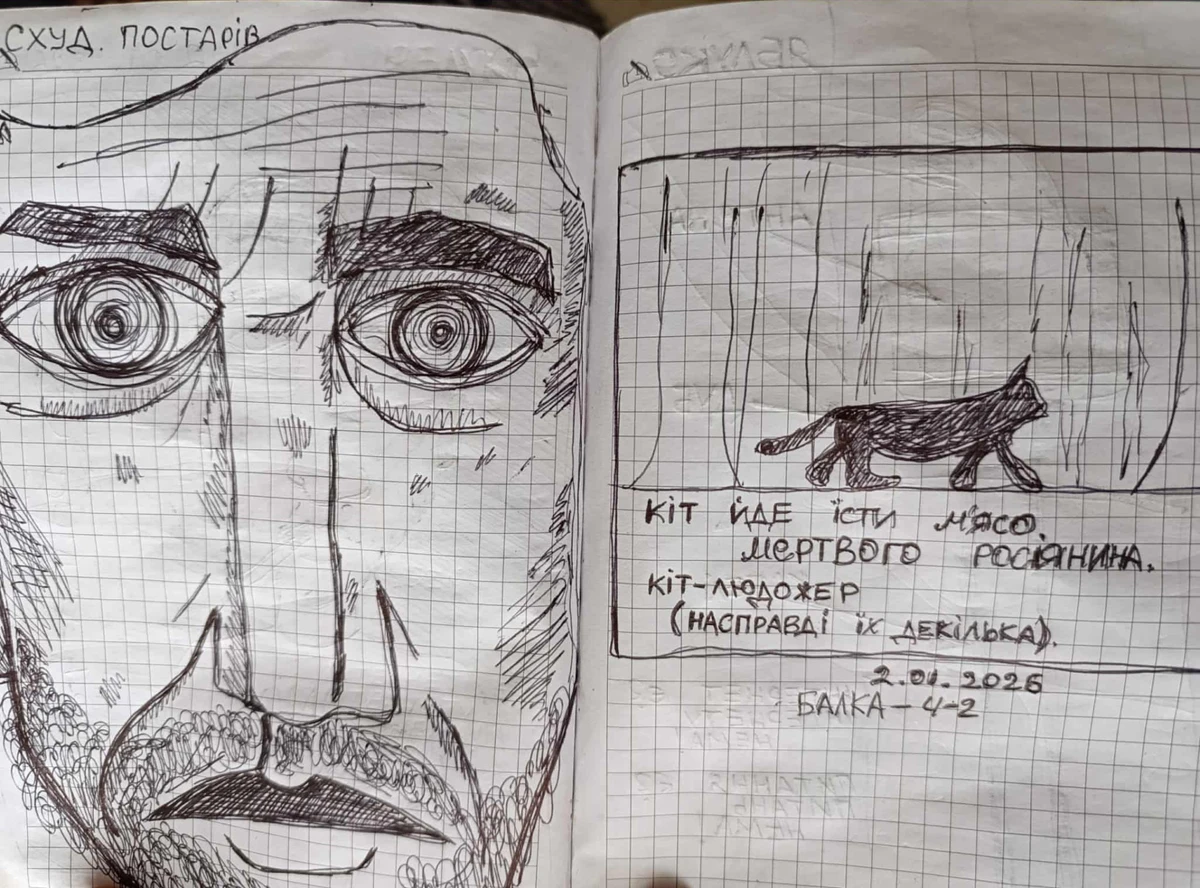 СХУД. ПОСТАРІВ
КІТ ЙДЕ ЇСТИ М'ЯСО.
МЕРТВОГО РОСІЯНИНА.
КІТ-ЛЮДОЖЕР
(НАСПРАВДІ ЇХ ДЕКІЛЬКА).
2.01.2026
БАЛКА-4-2